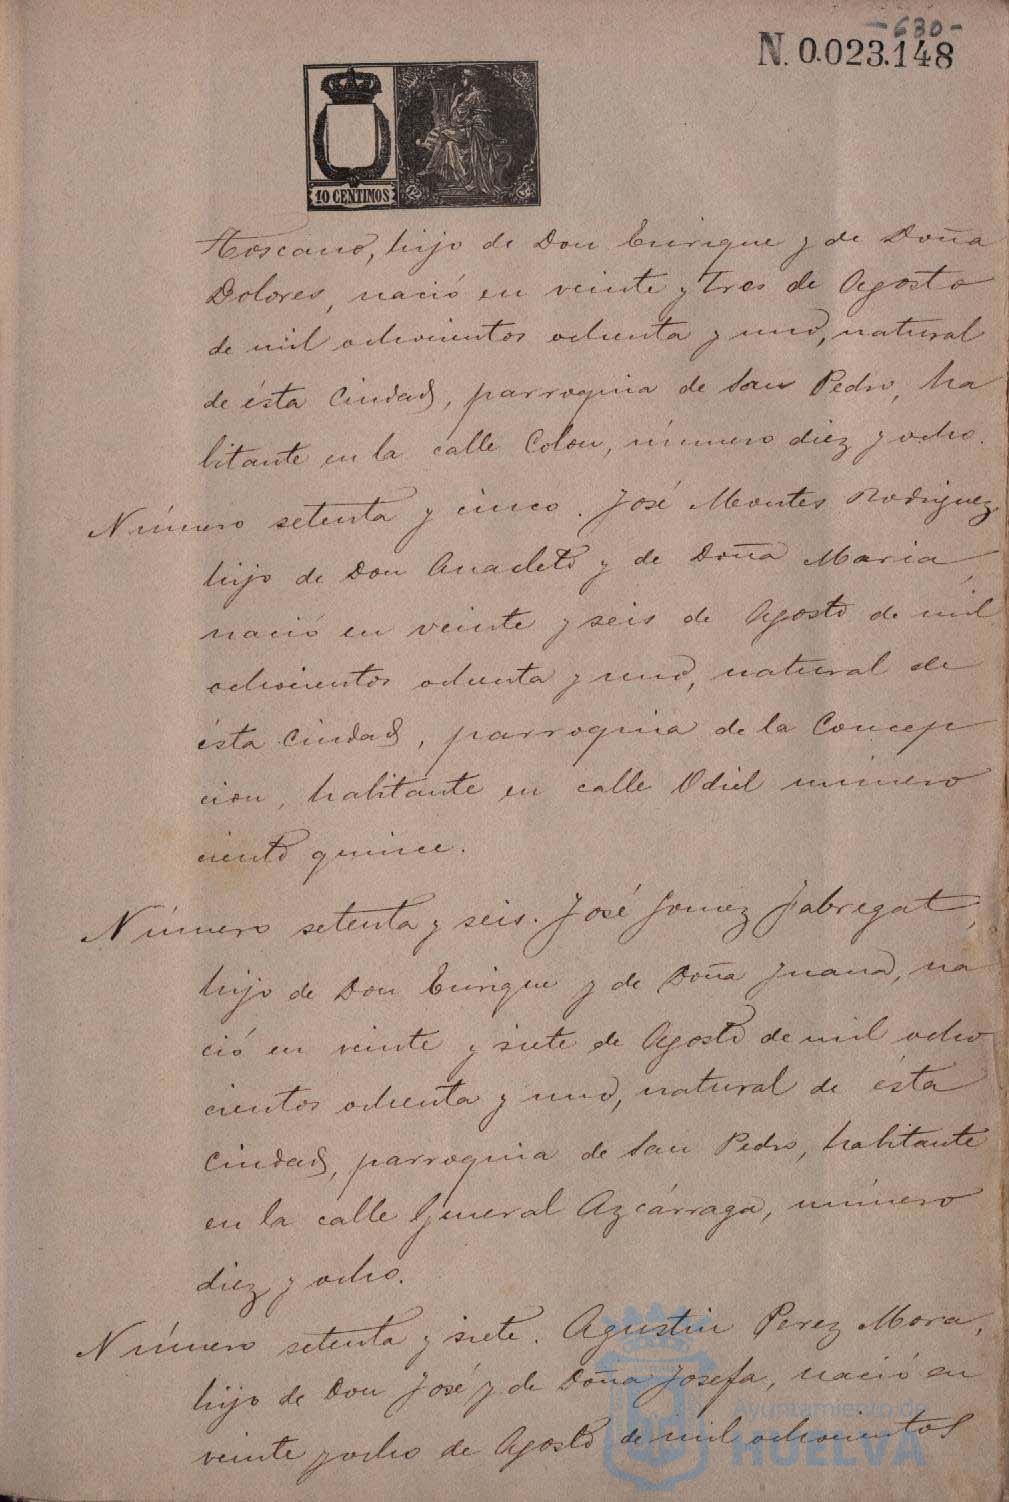 -630-
N. 0.023.148
10 CENTIMOS
Toscano, hijo de Don Enrique y de Doña
Dolores, nació en veinte y tres de Agosto
de mil ochocientos ochenta y uno, natural
de ésta Ciudad, parroquia de San Pedro, ha
bitante en la calle Colon, número diez y ocho.
Número setenta y cinco. José Montes Rodriguez,
hijo de Don Anacleto y de Doña Maria,
nació en veinte y seis de Agosto de mil
ochocientos ochenta y uno, natural de
ésta Ciudad, parroquia de la Concep
cion, habitante en calle Odiel número
ciento quince.
Número setenta y seis. José Gomez Fabregat,
hijo de Don Enrique y de Doña Juana, na
ció en veinte y siete de Agosto de mil ocho
cientos ochenta y uno, natural de ésta
Ciudad, parroquia de San Pedro, habitante
en la calle General Azcárraga, número
diez y ocho.
Número setenta y siete. Agustin Perez Mora,
hijo de Don José y de Doña Josefa, nació en
veinte y ocho de Agosto de mil ochocientos
Ayuntamiento de
HUELVA